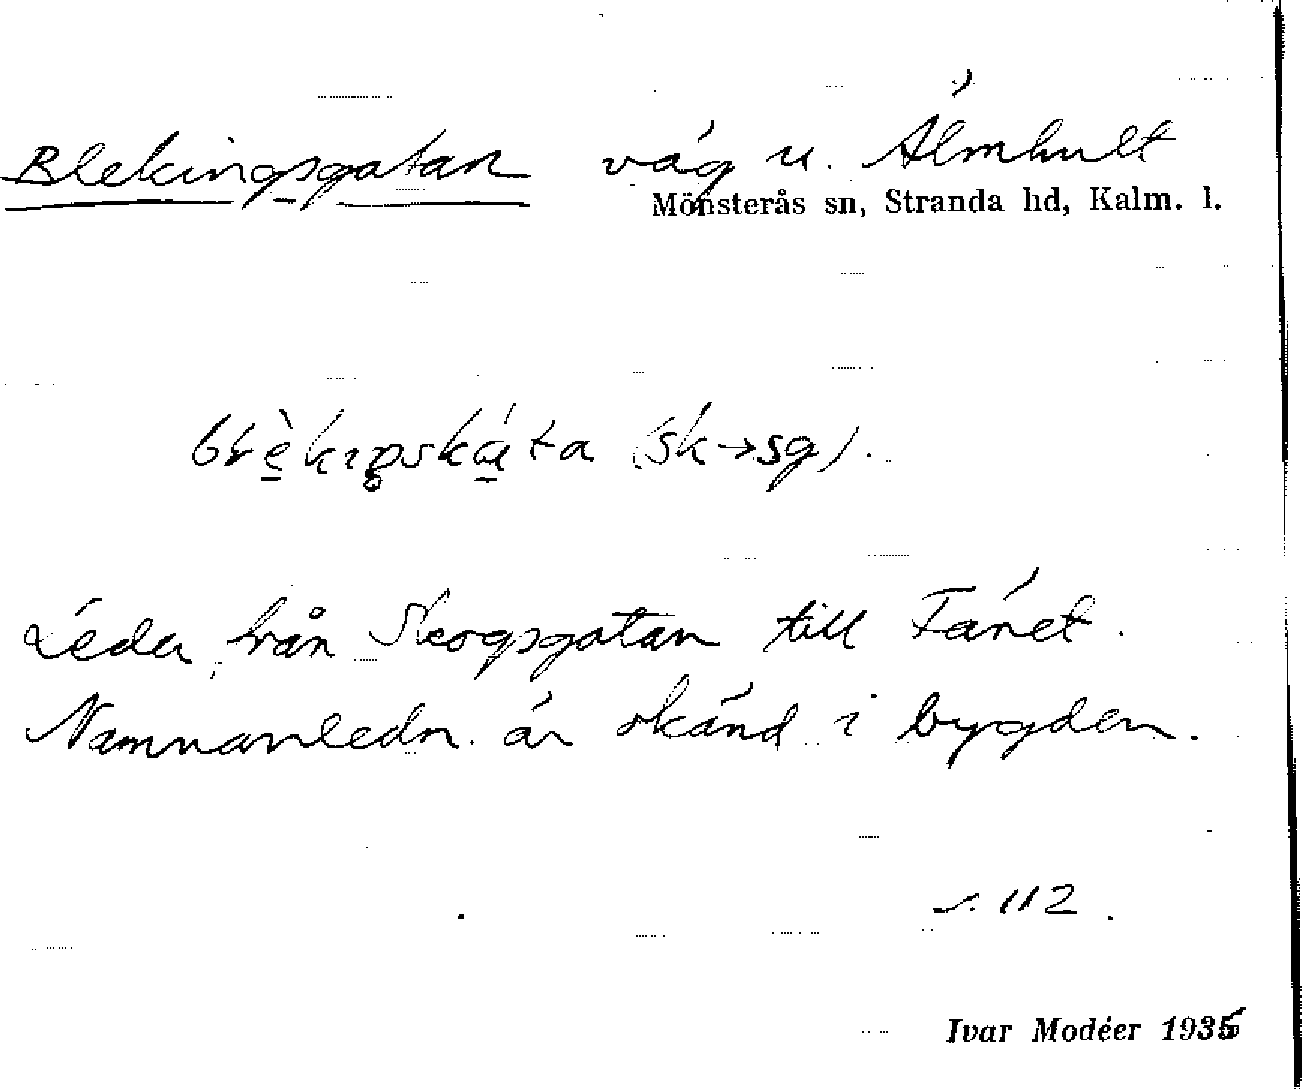 Blekingsgatan väg u. Älmhult
Mönsterås sn, Stranda hd, Kalm. l.
(sk→sg).
Leder från Skogsgatan till Tänet.
Namnanledn. är okänd i bygden.
s. 112.
Ivar Modéer 1935